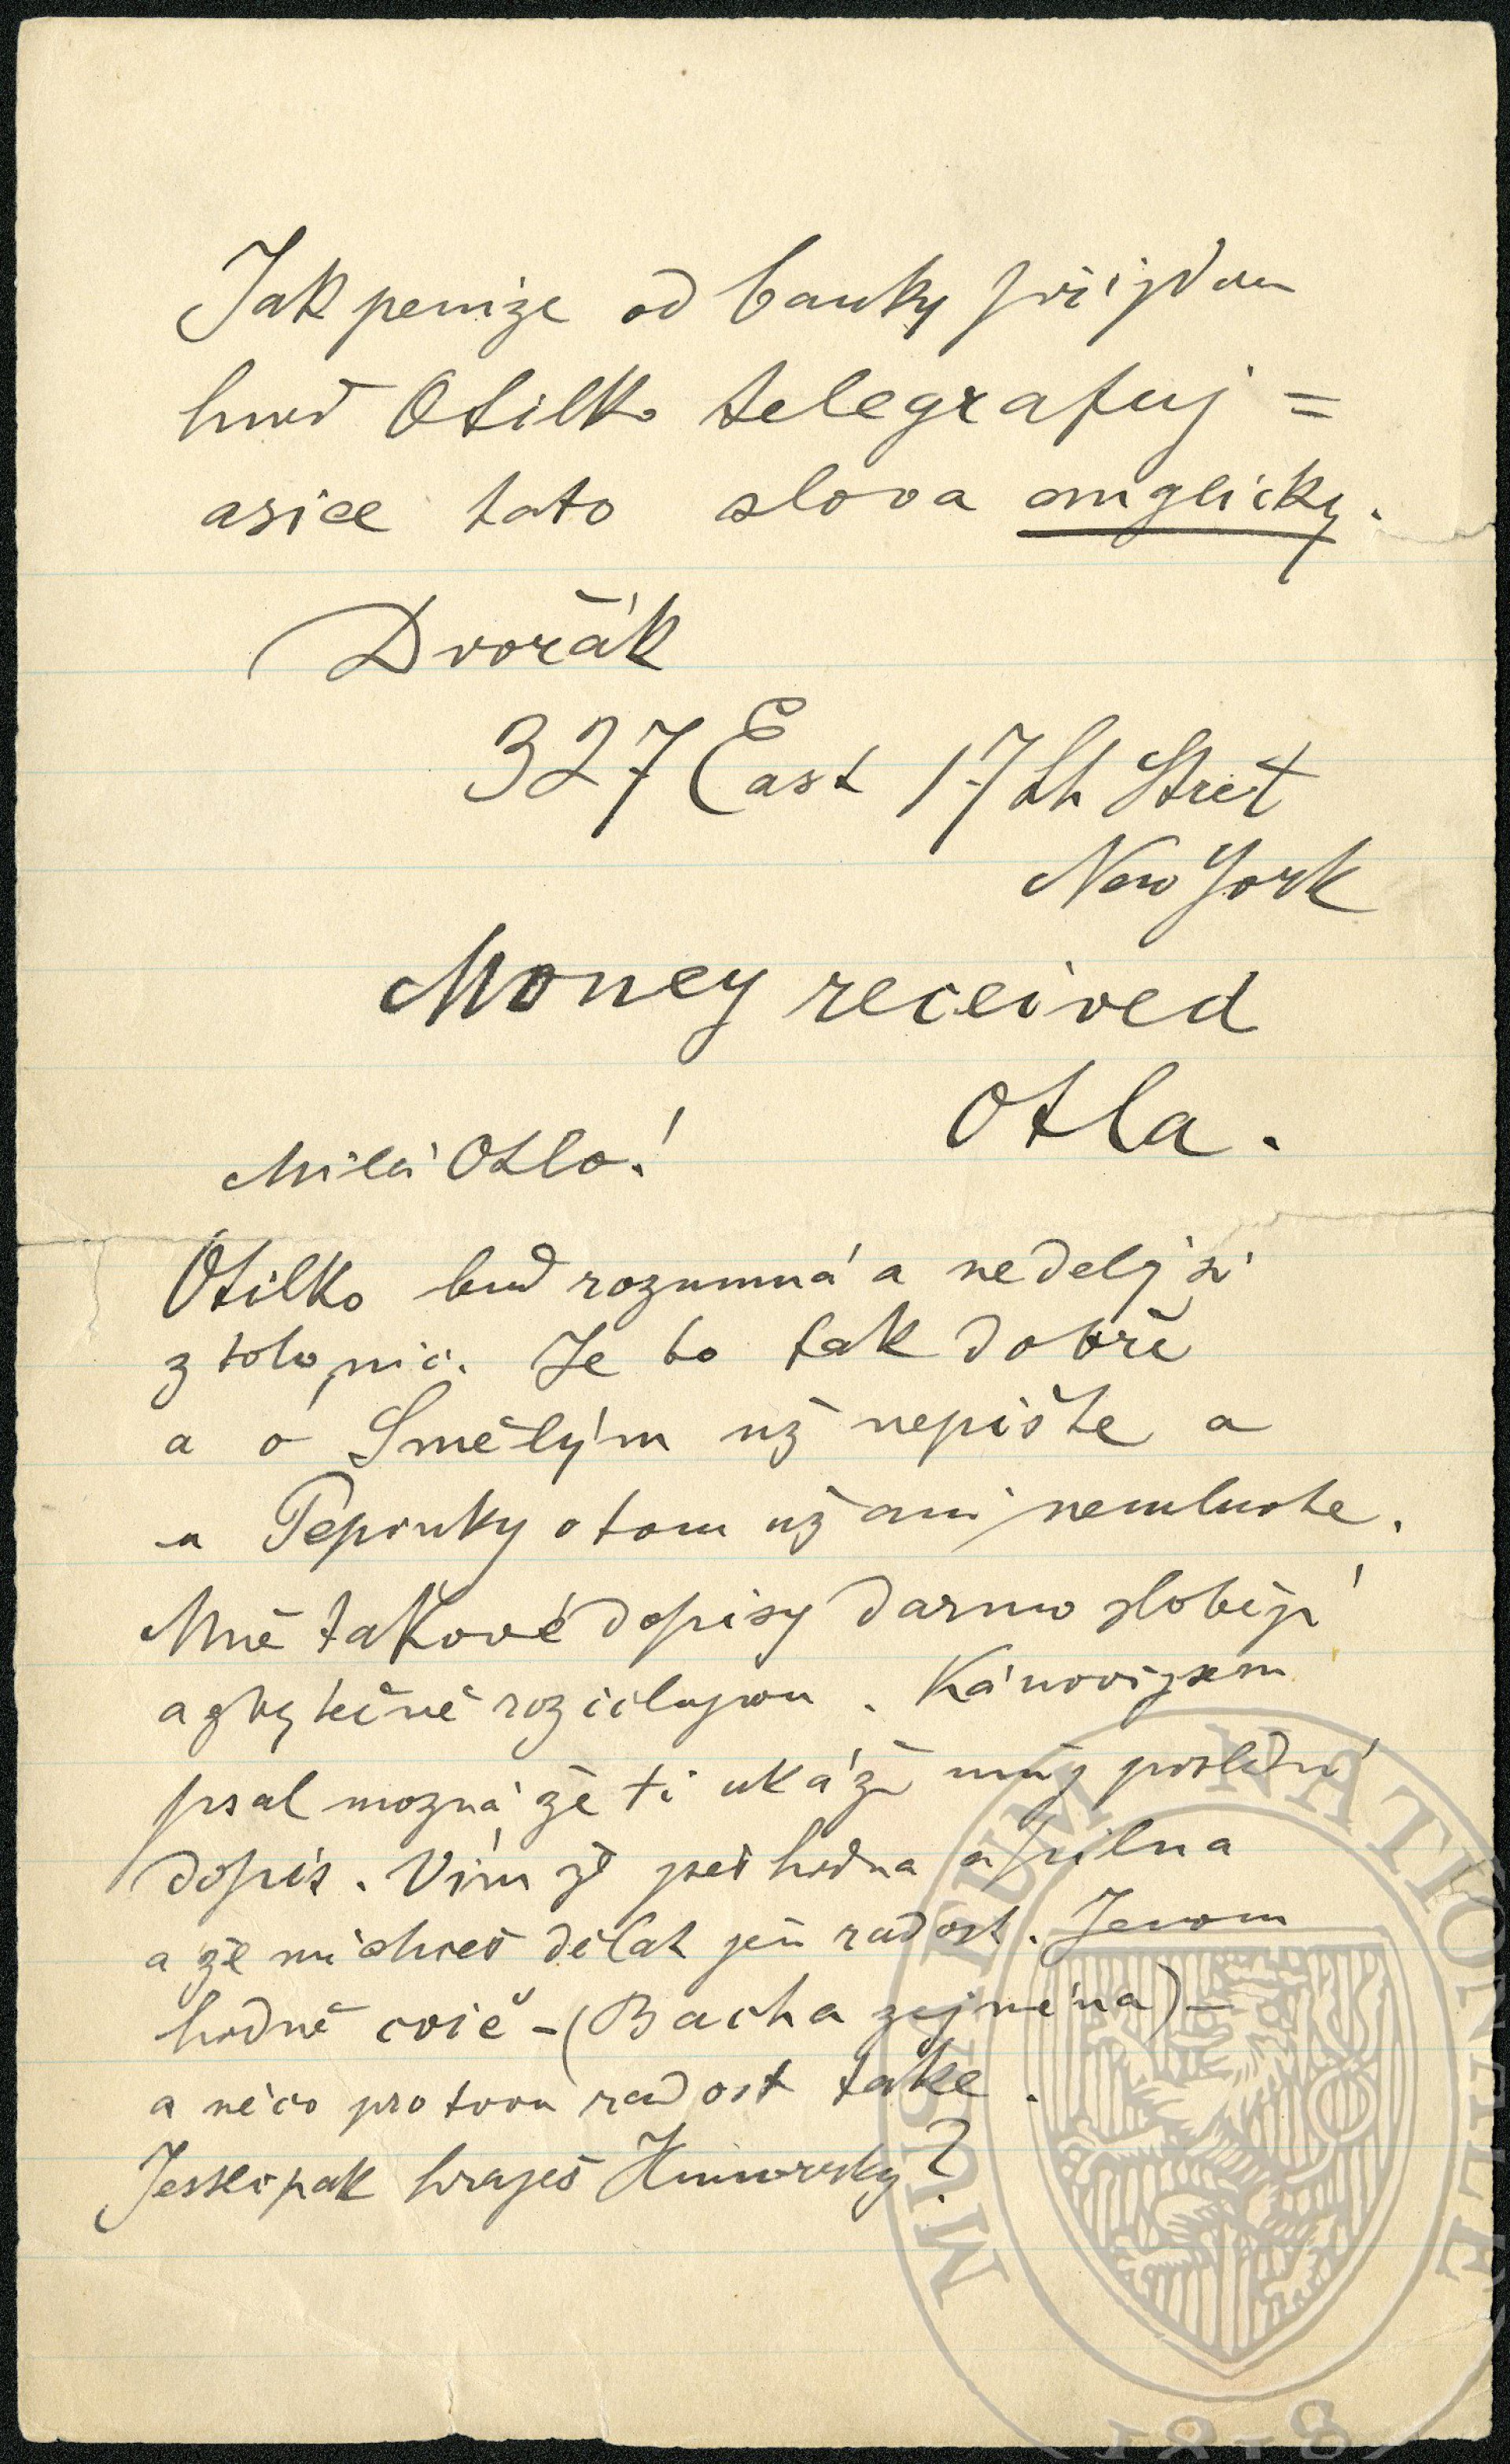 Jak peníze od banky přijdou
hned Otilko telegrafuj =
a sice tato slova anglicky.
Dvořák
327 East 17th Street
New York
Money received
Otla.
Milá Otlo!
Otilko buď rozumná a nedělej si
z toho nic. Je to tak dobře
a o Smělým už nepište a
u Pepinky o tom už ani nemluvte.
Mně takové dopisy darmo zlobějí
a zbytečně rozčilujou. Kánovi jsem
psal možná že ti ukáže můj poslední
dopis. Vím že jseš hodná a pilná
a že mi chceš dělat jen radost. Jenom
hodně cvič - (Bacha zejména) -
a něco pro tvou radost také.
Jestlipak hraješ Humoresky?
MUSAEUM NATIONALE
1818